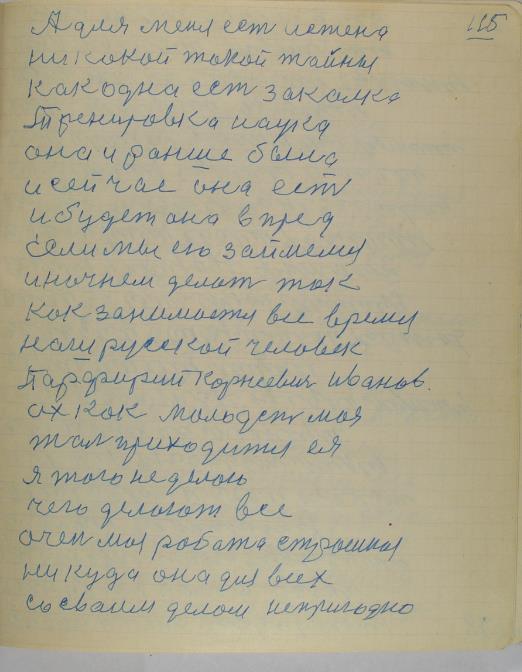 115
А для меня ест истена
ни кокой токой тайны
как одна ест закалка
Тренировка наука
она и ранше была
и сейчас она ест
и будет она впред
если мы ею займемся
и начнем делот ток
кок занимался все время
наш русской человек
Парфирий Корнеевич Иванов.
ох кок молодст моя
жал приходится ея
я того не делою
чего делоют все
очен моя робата страшная
ни куда она для всех
со сваим делом непригодно